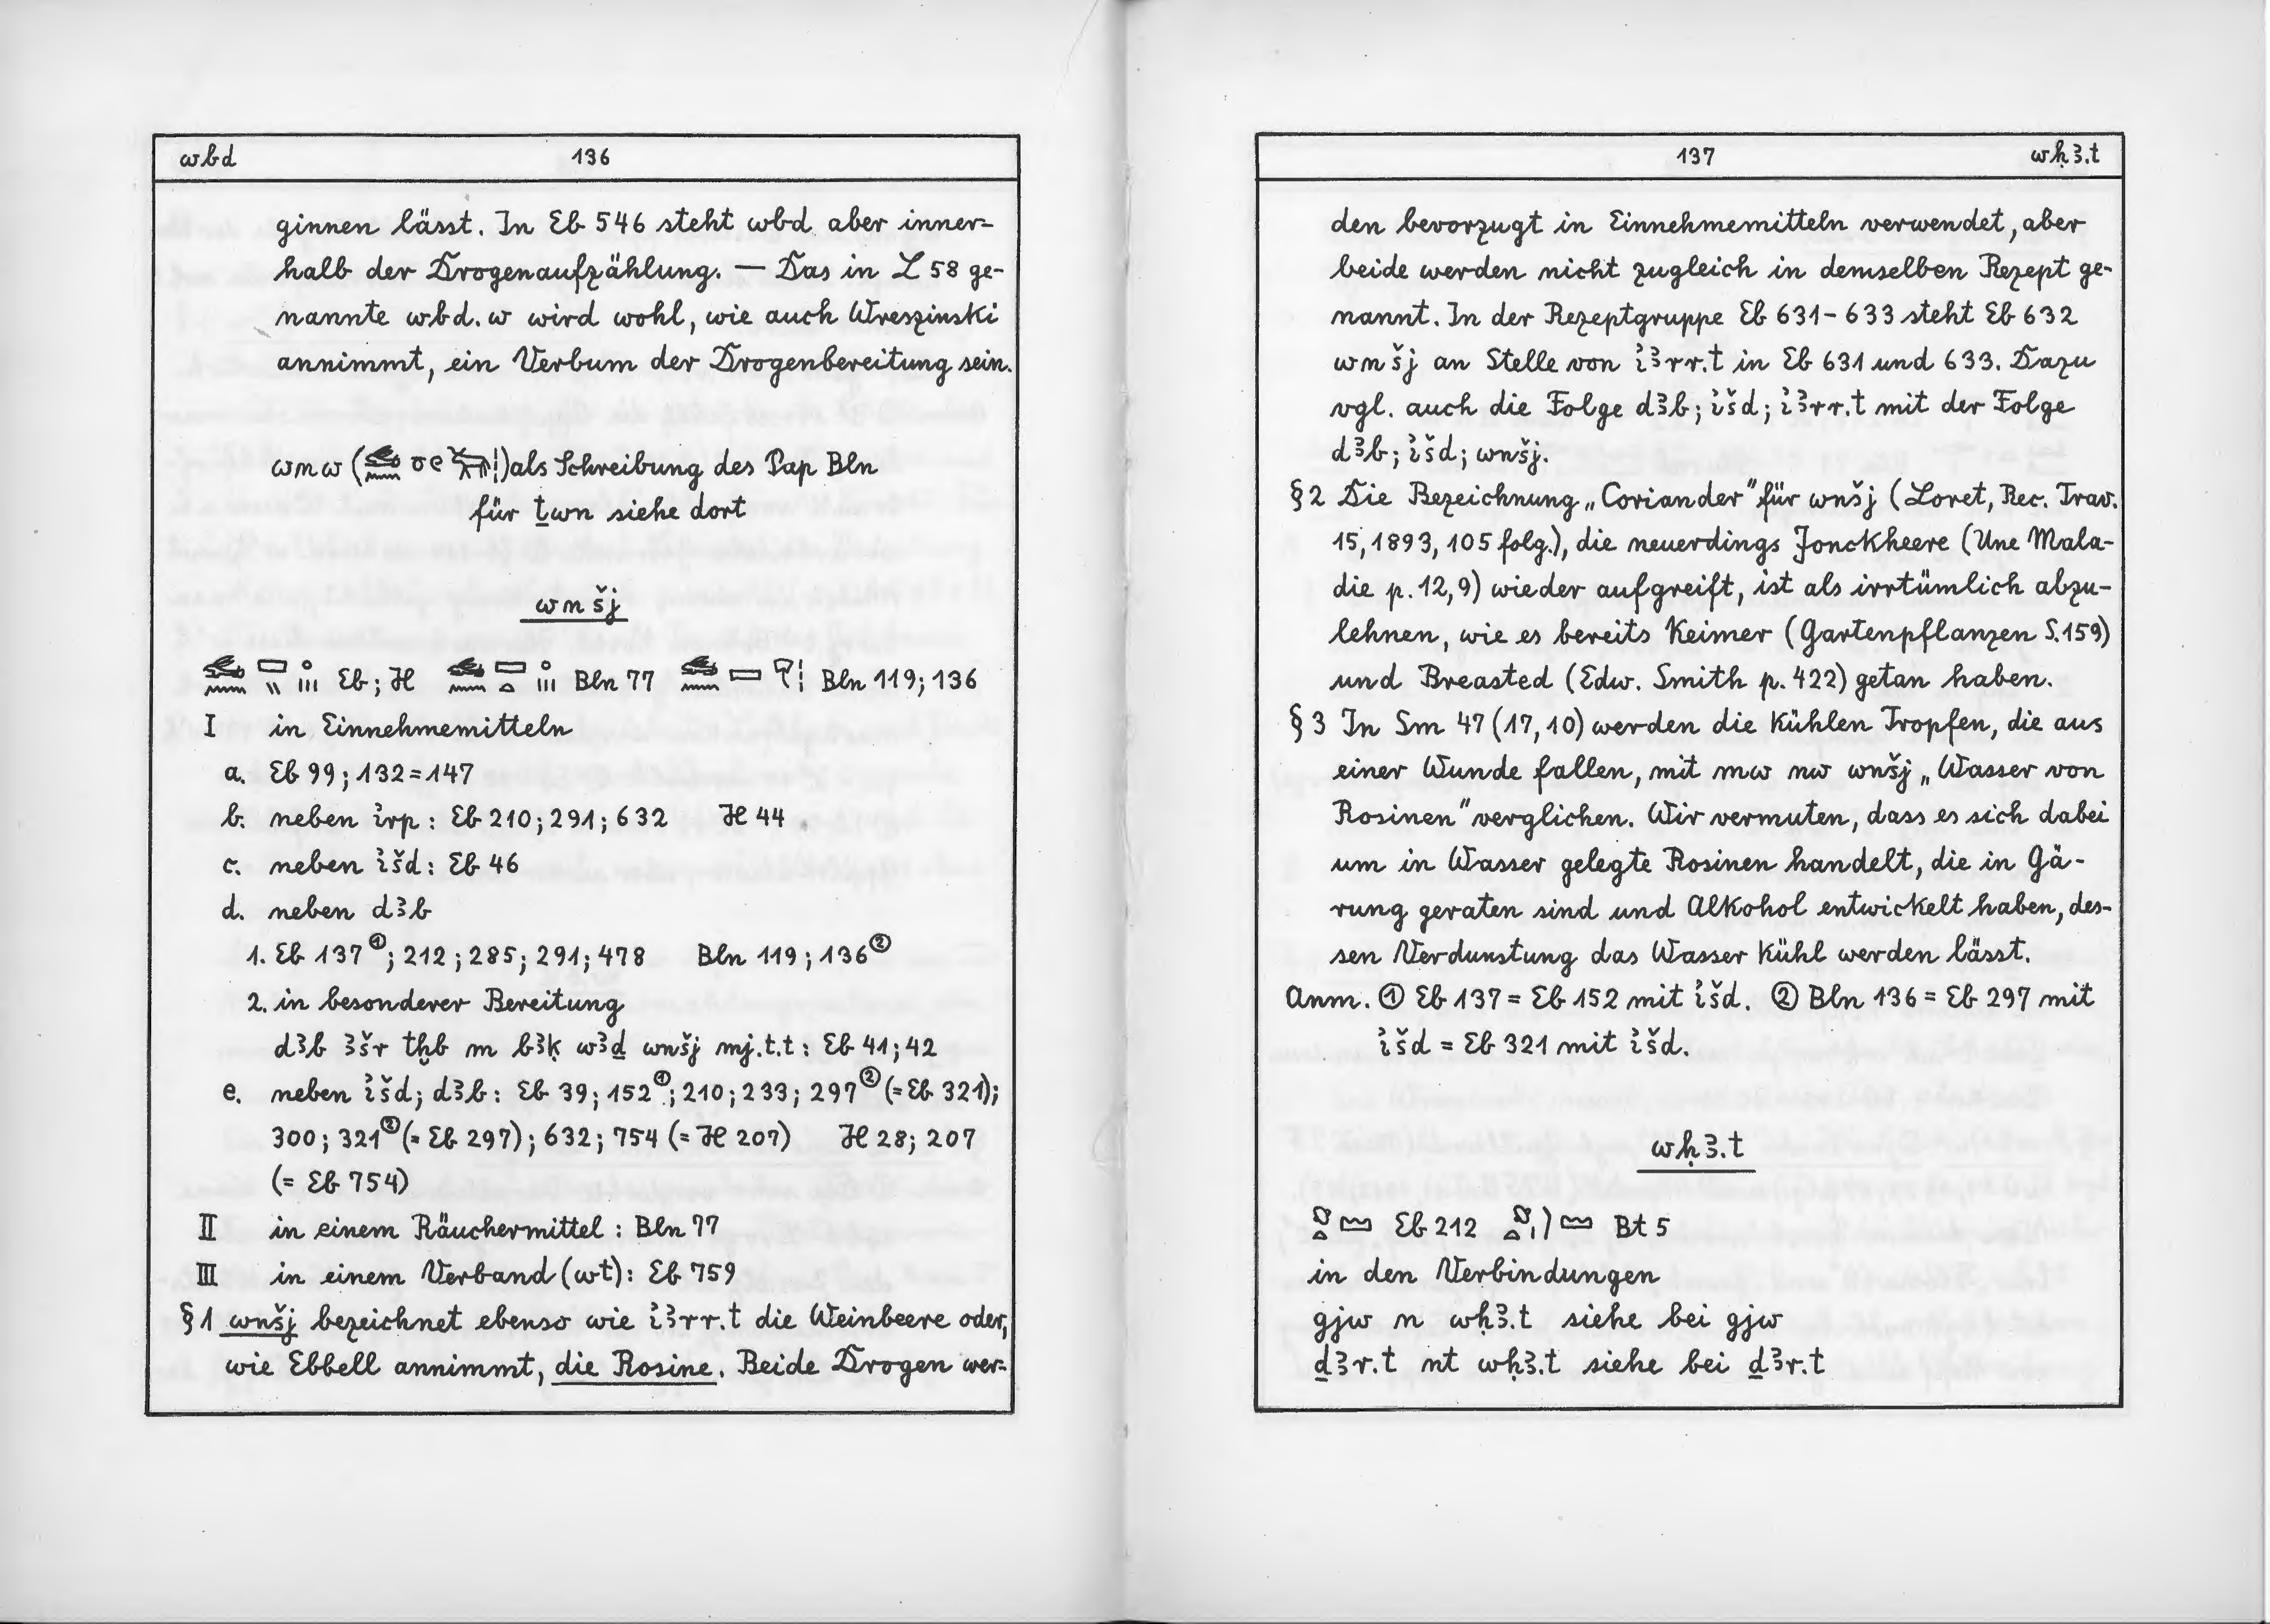 wbd 136
ginnen lässt. In Eb 546 steht wbd aber inner-
halb der Drogenaufzählung. — Das in L 58 ge-
nannte wbd.w wird wohl, wie auch Wreszinski
annimmt, ein Verbum der Drogenbereitung sein.
wnw ( ) als Schreibung des Pap Bln
für ṯwn siehe dort
wnšj
Eb; H Bln 77 Bln 119; 136
I in Einnehmemitteln
a. Eb 99; 132=147
b. neben i҆rp: Eb 210; 291; 632 H 44
c. neben i҆šd: Eb 46
d. neben dꜣb
1. Eb 137①; 212; 285; 291; 478 Bln 119; 136②
2. in besonderer Bereitung
dꜣb ꜣšr tḫb m bꜣḳ wꜣḏ wnšj mj.t.t: Eb 41; 42
e. neben i҆šd; dꜣb: Eb 39; 152①; 210; 233; 297② (=Eb 321);
300; 321② (= Eb 297); 632; 754 (= H 207) H 28; 207
(= Eb 754)
II in einem Räuchermittel: Bln 77
III in einem Verband (wt): Eb 759
§ 1 wnšj bezeichnet ebenso wie i҆ꜣrr.t die Weinbeere oder,
wie Ebbell annimmt, die Rosine. Beide Drogen wer-
137 wḥꜣ.t
den bevorzugt in Einnehmemitteln verwendet, aber
beide werden nicht zugleich in demselben Rezept ge-
nannt. In der Rezeptgruppe Eb 631-633 steht Eb 632
wnšj an Stelle von i҆ꜣrr.t in Eb 631 und 633. Dazu
vgl. auch die Folge dꜣb; i҆šd; i҆ꜣrr.t mit der Folge
dꜣb; i҆šd; wnšj.
§ 2 Die Bezeichnung „Coriander" für wnšj (Loret, Rec. Trav.
15, 1893, 105 folg.), die neuerdings Jonckheere (Une Mala-
die p. 12,9) wieder aufgreift, ist als irrtümlich abzu-
lehnen, wie es bereits Keimer (Gartenpflanzen S. 159)
und Breasted (Edw. Smith p. 422) getan haben.
§ 3 In Sm 47 (17, 10) werden die kühlen Tropfen, die aus
einer Wunde fallen, mit mw nw wnšj „Wasser von
Rosinen" verglichen. Wir vermuten, dass es sich dabei
um in Wasser gelegte Rosinen handelt, die in Gä-
rung geraten sind und Alkohol entwickelt haben, des-
sen Verdunstung das Wasser kühl werden lässt.
Anm. ① Eb 137 = Eb 152 mit i҆šd. ② Bln 136 = Eb 297 mit
i҆šd = Eb 321 mit i҆šd.
wḥꜣ.t
Eb 212 Bt 5
in den Verbindungen
gjw n wḥꜣ.t siehe bei gjw
ḏꜣr.t nt wḥꜣ.t siehe bei ḏꜣr.t